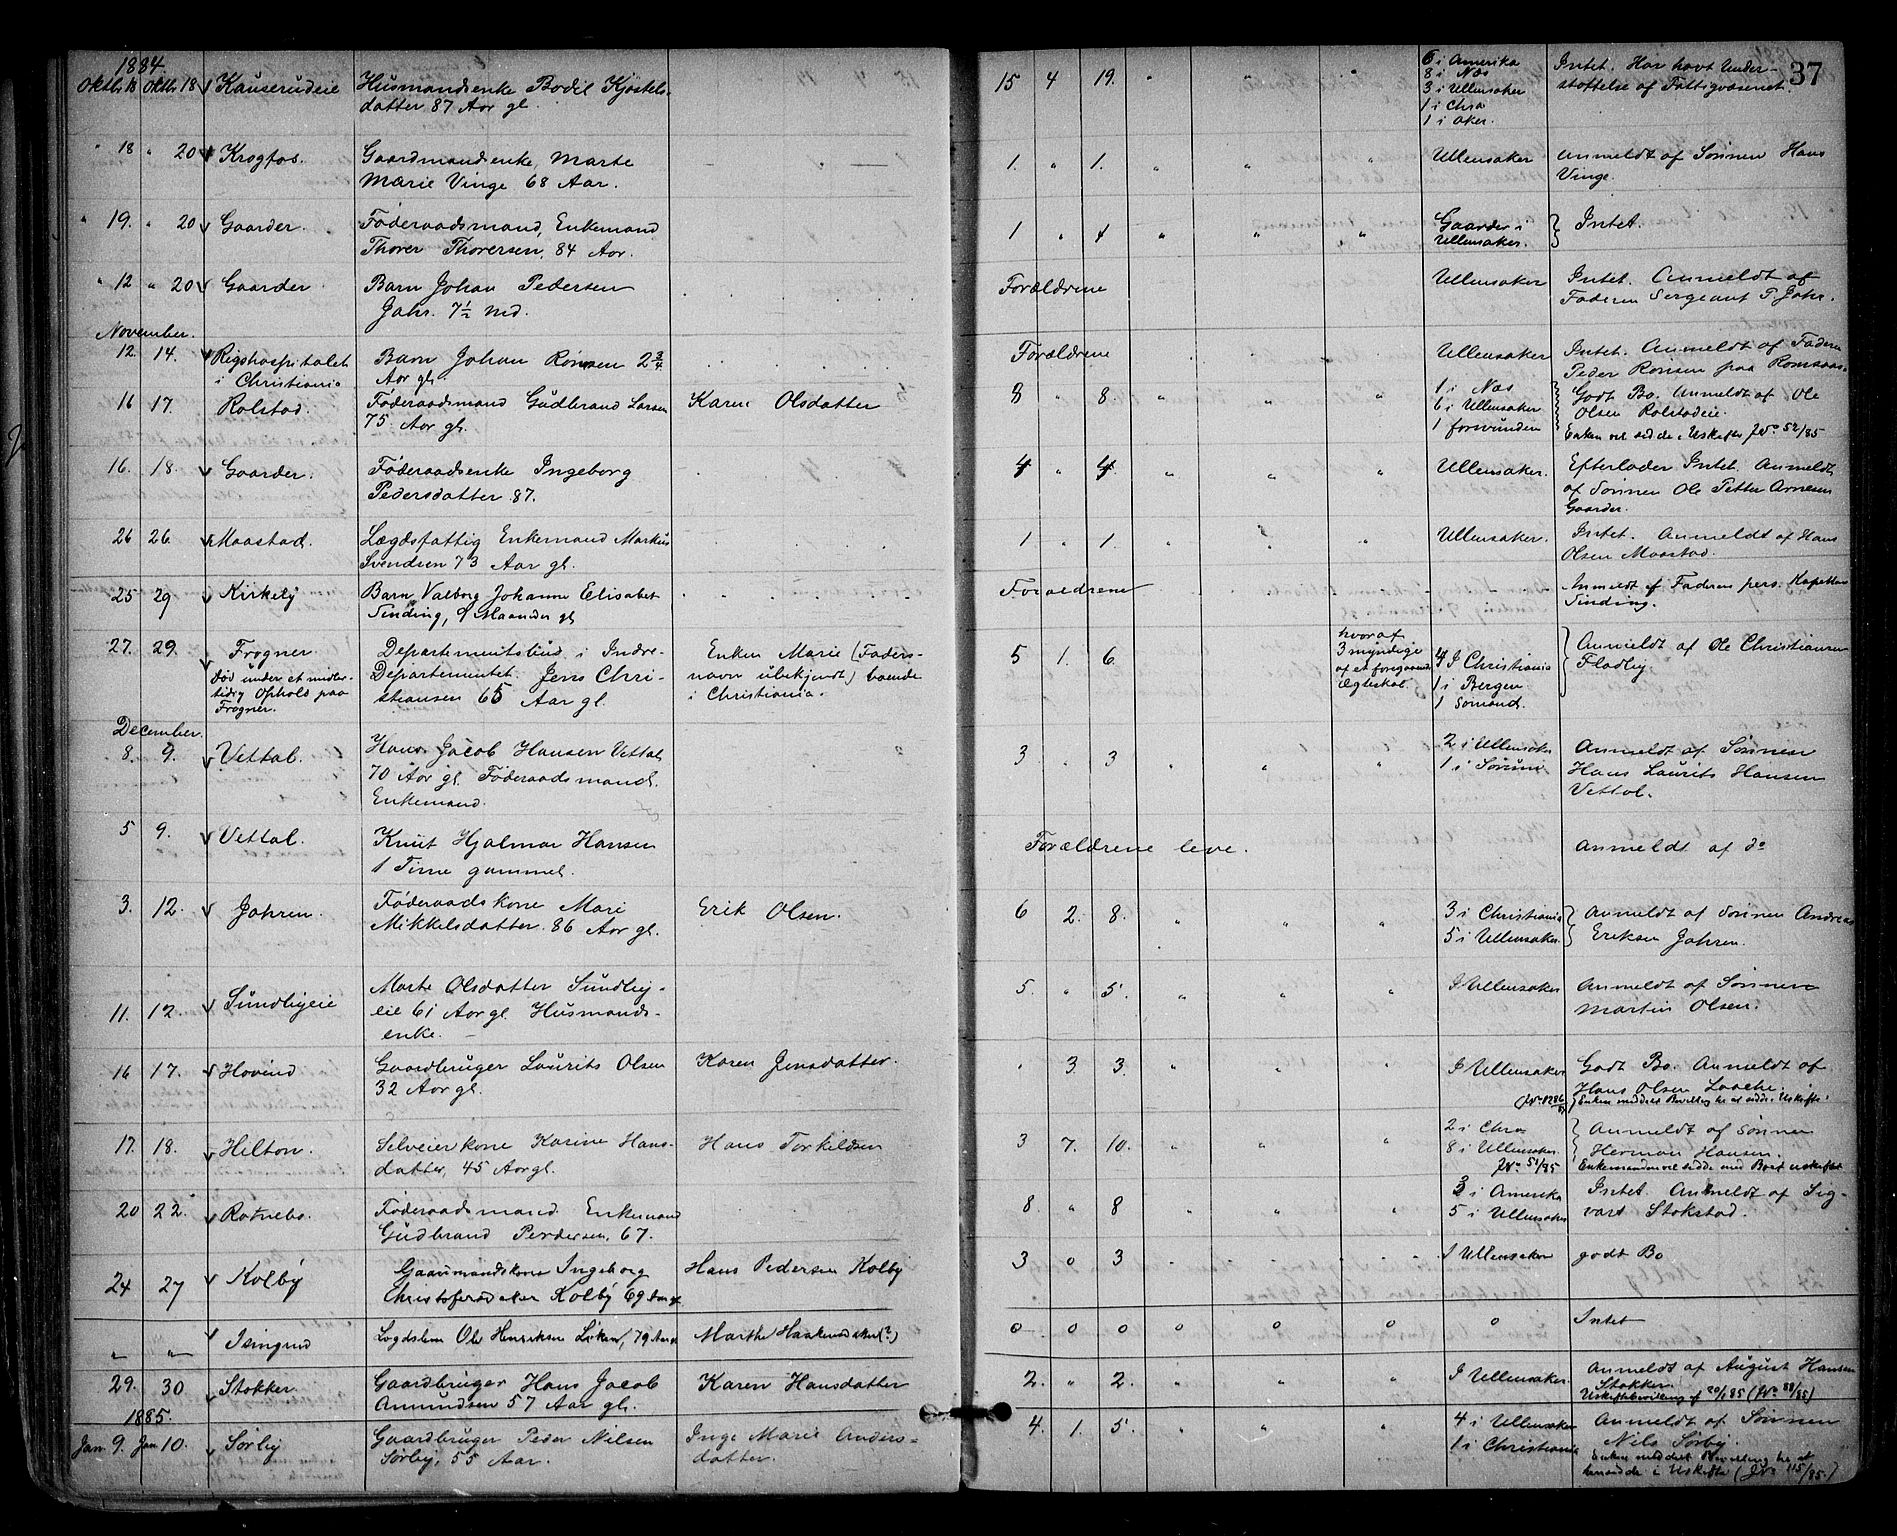 1884
37
Oktb. 13 Oktb 18 Kauserudeie Husmandsenke Bodil Kjøstels- 15 4 19. " " " 6 i Amerika Intet. Har havt Under-
datter 87 Aar gl. 8 i Næs støttelse af Fattigvæsenet.
3 i Ullensaker
1 i Chra
1 i Aker.
" 18 " 20 Krogfos. Gaardmandsenke, Marte 1. " 1. " " " Ullensaker Anmeldt af Sønnen Hans
Marie Vinge 68 Aar. Vinge.
" 19. " 20 Gaarder. Føderaadsmand, Enkemand 1 " 1 " " " Gaarder i Intet.
Thorer Thorersen, 84 Aar. Ullensaker.
" 12 " 20 Gaarder Barn Johan Pedersen Forældrene Ullensaker Intet. Anmeldt af
Jahr. 7½ Md. Faderen Sergeant P Jahr.
November.
12. 14. Rigshospitalet Barn Johan Rønsen 2¾ Forældrene Ullensaker Intet. Anmeldt af Faderen
i Christiania Aar gl. Peder Rønsen paa Romsaas.
16 17. Rolstad. Føderaadsmand Gudbrand Larsen Karen Olsdatter 8 " 8. " " " 1 i Næs Godt Bo. Anmeldt af Ole
75 Aar gl. 6 i Ullensaker Olsen Rolstadeie.
1 forsvunden Enken vil sidde i Uskiftet JNo 52/85
16. 18. Gaarder. Føderaadsenke Ingeborg 4 " 4. " " " Ullensaker. Efterlader Intet. Anmeldt
Pedersdatter 87. af Sønnen Ole Petter Arnesen
Gaarder.
26 26 Maastad. Lægdsfattig Enkemand Markus 1 " 1. " " " Ullensaker. Intet. Anmeldt af Hans
Svendsen 73 Aar gl. Olsen Maastad.
25 29 Kirkeby Barn Valborg Johanne Elisabet Forældrene Anmeldt af Faderen pers. Kapellan
Sinding, 9 Maaneder gl Sinding.
27. 29. Frogner Departementsbud i Indre- Enken Marie (Faders- 5 1. 6. hvoraf 4 I Christiania Anmeldt af Ole Christiansen
død under et midler- Departementet. Jens Chri- navn ubekjendt) boende 3 myndige 1 i Bergen Fladby.
tidig Ophold paa stiansen 65 Aar gl. i Christiania. af et foregaaende 1 Sømand.
Frogner. Ægteskab.
December.
8. 9. Vettal. Hans Jacob Hansen Vettal 3 " 3 " " " 2 i Ullensaker Anmeldt af Sønnen
70 Aar gl. Føderaadsmand. 1 i Sørum Hans Laurits Hansen
Enkemand. Vettal.
5 9. Vettal. Knut Hjalmar Hansen Forældrene leve. Anmeldt af do
1 Time gammel.
3. 12. Jahren. Føderaadskone Mari Erik Olsen. 6 2. 8. " " " 3 i Christiania Anmeldt af Sønnen Andreas
Mikkelsdatter. 86 Aar gl. 5 i Ullensaker. Eriksen Jahren.
11. 12. Sundbyeie Marte Olsdatter Sundby- 5. " 5. " " " I Ullensaker Anmeldt af Sønnen
eie 61 Aar gl. Husmands- Martin Olsen.
enke.
16 17. Hovind Gaardbruger Laurits Olsen Karen Jensdatter. " 3. 3. " " " I Ullensaker Godt Bo. Anmeldt af
32 Aar gl. Hans Olsen Laache.
Enken meddelt Bevilling til at sidde i Uskifte.
17. 18. Hilton. Selveierkone Karine Hans- Hans Torkildsen 3 7. 10. " " " 2 i Chra Anmeldt af Sønnen
datter, 45 Aar gl. 8 i Ullensaker. Herman Hansen.
JNo 51/85 Enkemanden vil sidde med Boet uskiftet
20 22. Rotnebo. Føderaadsmand Enkemand 8. " 8 " " " 3 i Amerika Intet. Anmeldt af Sig-
Gudbrand Perdersen, 67. 5 i Ullensaker vart Stokstad.
24 27 Kolby Gaarmandskone Ingeborg Hans Pedersen Kolby 3 0 3 " " " I Ullensaker godt Bo
Christofersdatter Kolby 69 Aar gl
" " Isingrud Legdslem Ole Henriksen, 79 Aar gl Marthe Haakensdatter(?) 0 0 0 0 0 0 0 Intet
29. 30 Stokker Gaardbruger Hans Jacob Karen Hansdatter 2. " 2. " " " I Ullensaker. Anmeldt af August Hansen
Amundsen 57 Aar gl. Stokker.
Uskiftebevilling af 20/1 85 (JNo 88/85)
1885.
Jan. 9. Jan 10. Sørby Gaardbruger Peder Nilsen Inge Marie Anders- 4. 1. 5. " " " 4 i Ullensaker Anmeldt af Sønnen
Sørby, 55 Aar. datter. 1 i Christiania Nils Sørby.
Enken meddelt Bevilling til at
hensidde i Uskifte (JNo 115/85.)